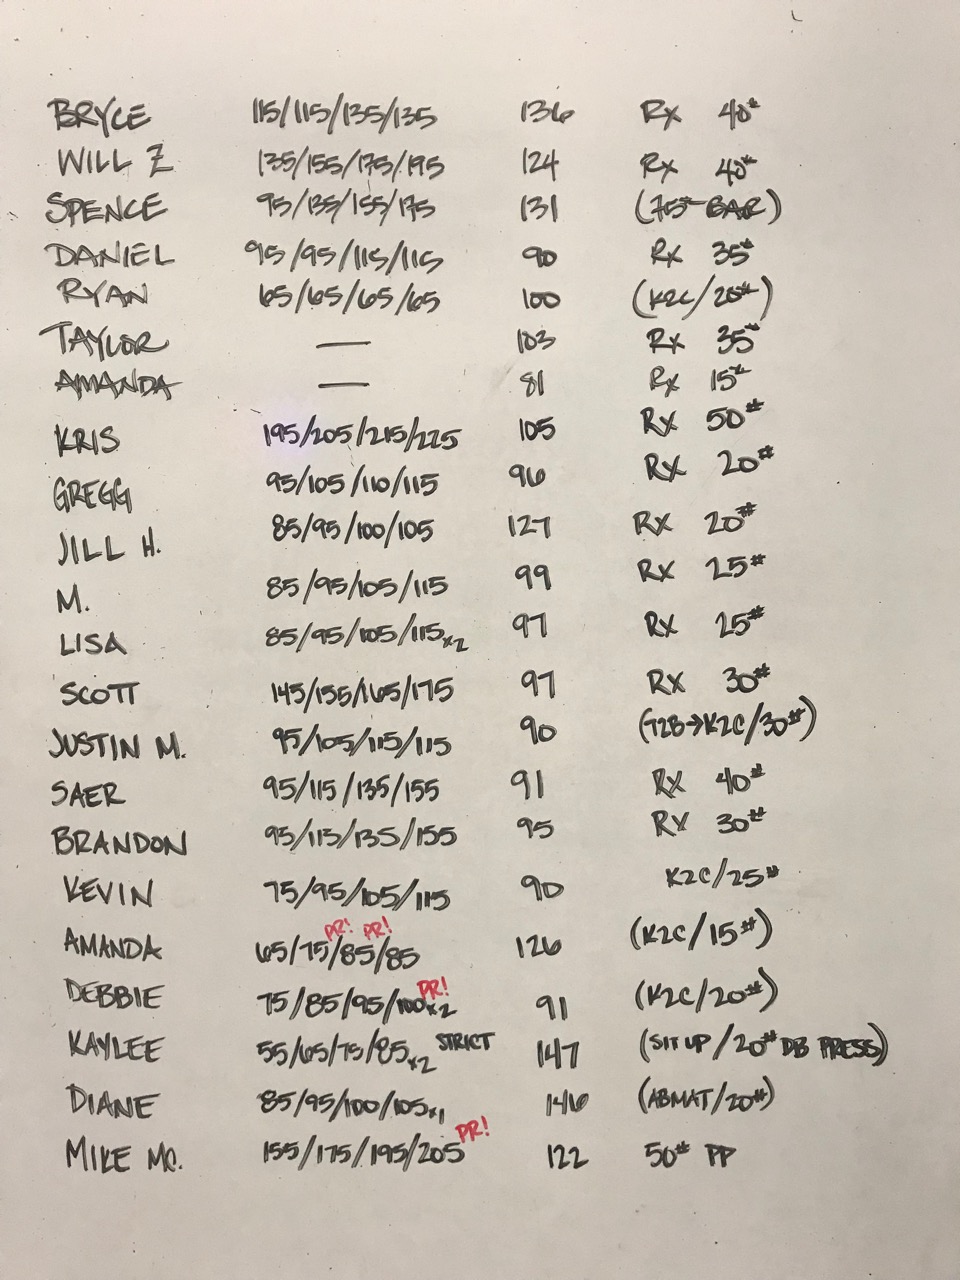 BRYCE 115/115/135/135 136 Rx 40#
WILL Z 135/155/175/195 124 Rx 40#
SPENCE 95/135/155/175 131 (75# BAR)
DANIEL 95/95/115/115 90 Rx 35#
RYAN 65/65/65/65 100 (K2C/20#)
TAYLOR — 103 Rx 35#
AMANDA — 81 Rx 15#
KRIS 195/205/215/225 105 Rx 50#
GREGG 95/105/110/115 96 Rx 20#
JILL H. 85/95/100/105 127 Rx 20#
M. 85/95/105/115 99 Rx 25#
LISA 85/95/105/115x2 97 Rx 25#
SCOTT 145/155/165/175 97 Rx 30#
JUSTIN M. 95/105/115/115 90 (T2B→K2C/30#)
SAER 95/115/135/155 91 Rx 40#
BRANDON 95/115/135/155 95 Rx 30#
KEVIN 75/95/105/115 90 K2C/25#
PR! PR!
AMANDA 65/75/85/85 126 (K2C/15#)
PR!
DEBBIE 75/85/95/100x2 91 (K2C/20#)
KAYLEE 55/65/75/85x2 STRICT 147 (SIT UP/20# DB PRESS)
DIANE 85/95/100/105x1 146 (ABMAT/20#)
PR!
MIKE MC. 155/175/195/205 122 50# PP